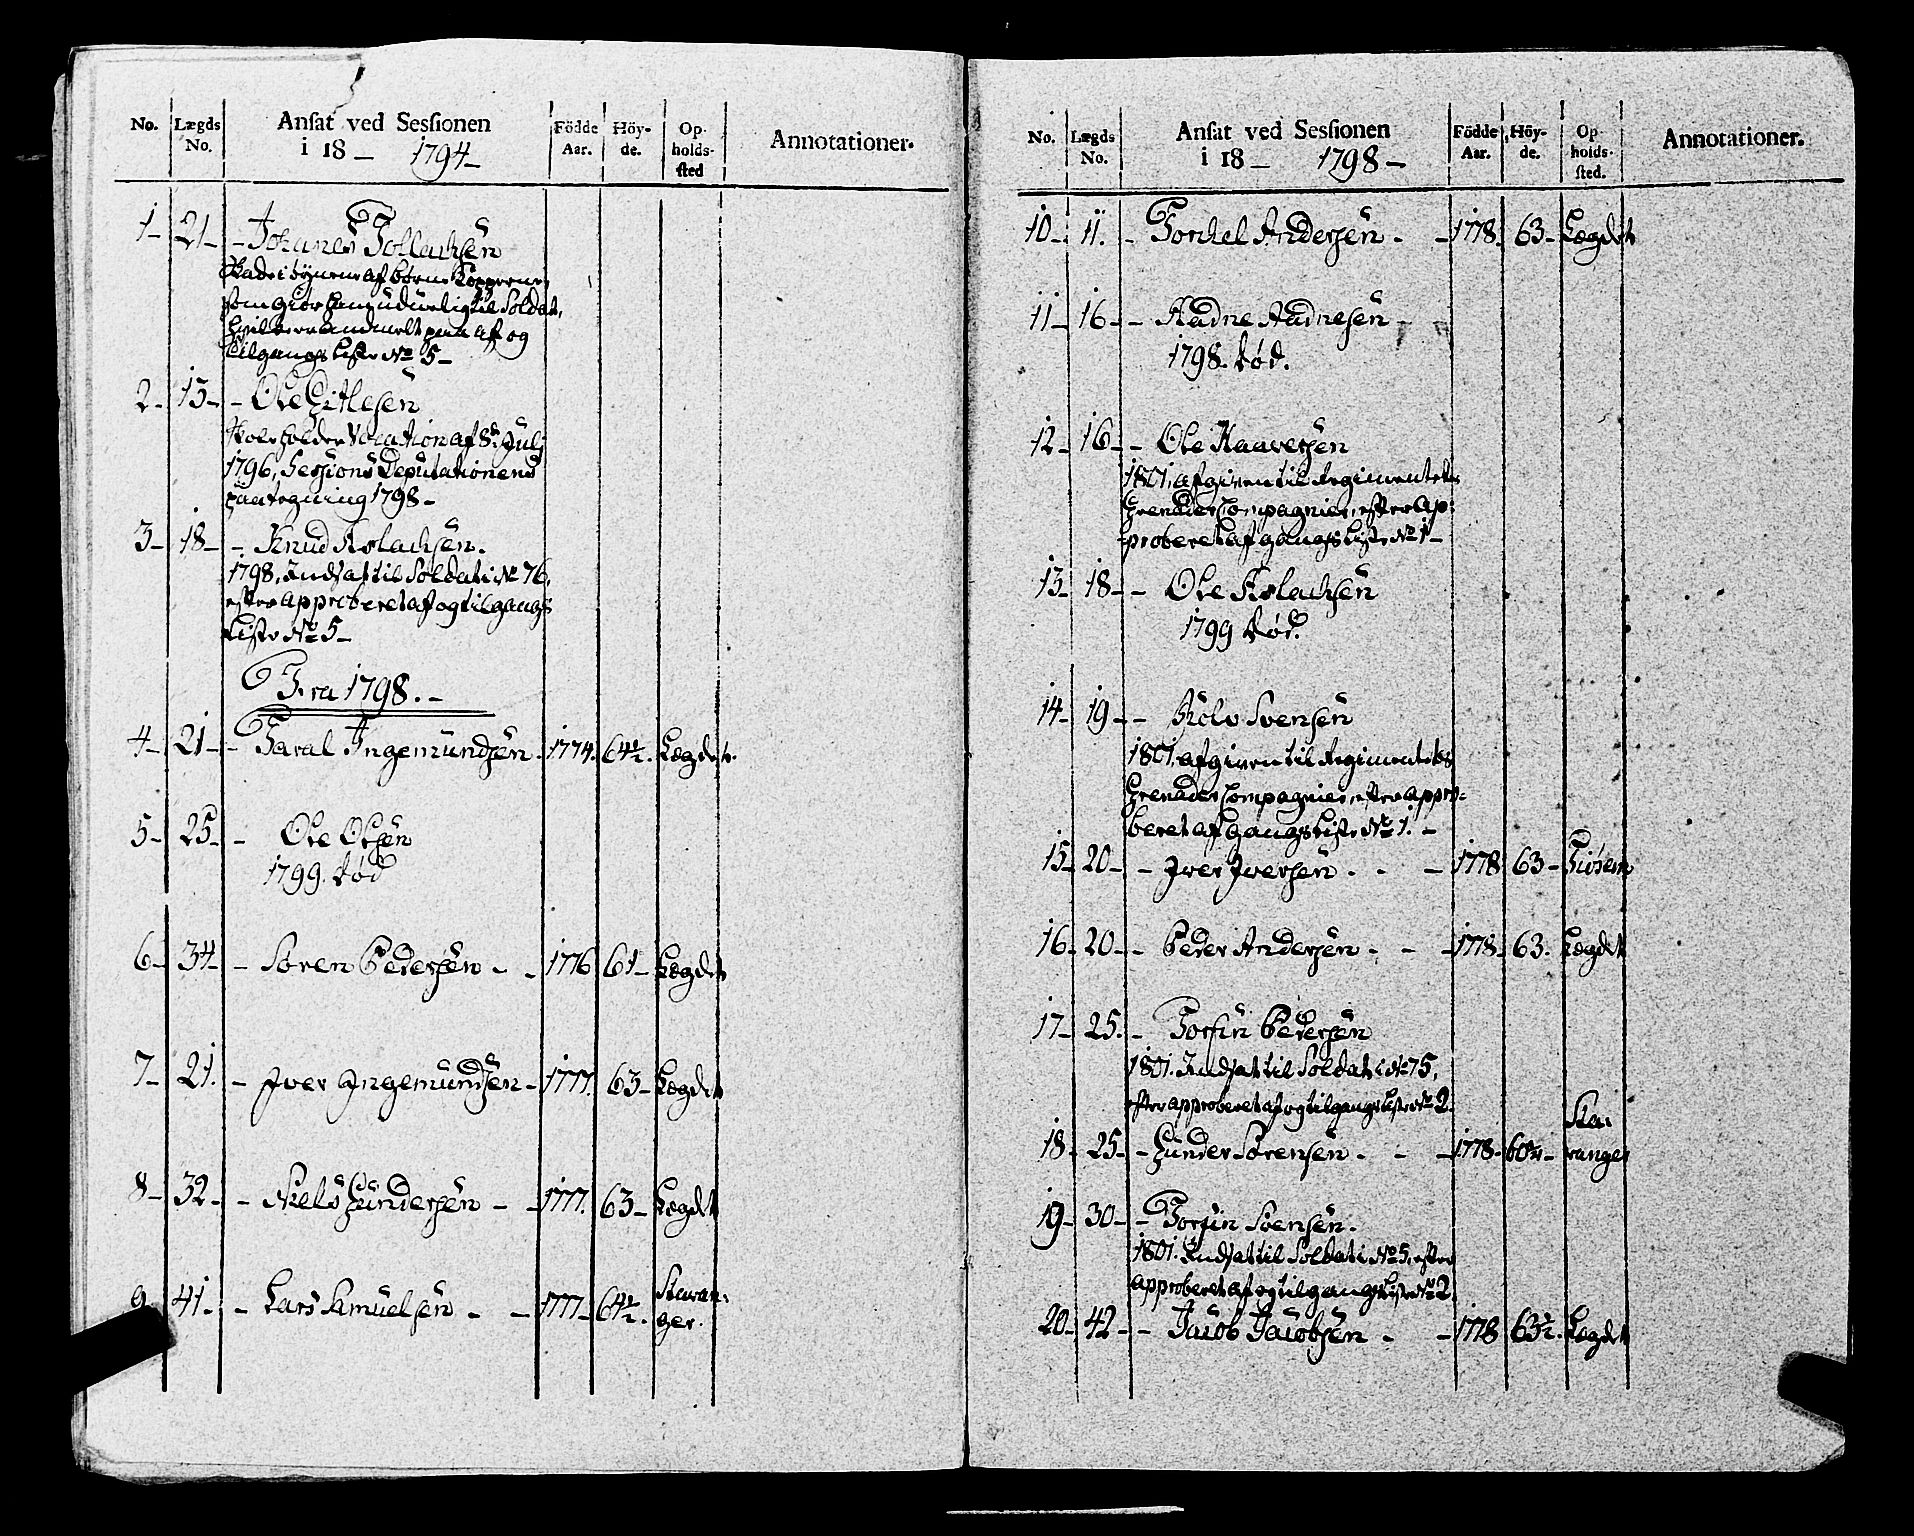 No. Lægds No. Ansat ved Sessionen i 18 – 1794 – Födde Aar. Höy-de. Op-holds-sted Annotationer.
1 – 21 – – Johanes Tollachsen
Skade i öynene af børne Kopperne,
som giør ham uduelig til Soldat,
hvilket er anmelt paa af og
tilgangs Liste No 5 –
2 – 13 – – Ole Gitlesen
Skoleholder Vocation af 8de Julj
1796, Sessions Deputationens
paategning 1798 –
3 – 18 – – Knud Aslachsen.
1798, Indsat til Soldat i No 76,
efter approberet af og tilgangs
Liste No 5 –
Fra 1798. –
4 – 21 – – Taral Ingemundsen. 1774. 64½. Lægdet.
5 – 25 – – Ole Olsen
1799. død
6 – 34 – – Søren Pedersen – – 1776 61 – Lægdet
7 – 21. – Iver Ingemundsen – 1777. 63 – Lægdet
8 – 32 – – Niels Gundersen – – 1777. 63 – Lægdet
9 41 – – Lars Samuelsen – – 1777 – 64½. Stavan-
ger.
No. Lægds No. Ansat ved Sessionen i 18 – 1798 – Födde Aar. Höy-de. Op-holds-sted. Annotationer.
10 – 11. – Torkel Andersen – – 1778. 63 – Lægdet
11 – 16 – – Aadne Aadnesen –
1798. død.
12 – 16 – – Ole Haaversen
1801, afgiven til Regimentets
Grenader Compagnier, efter Ap-
proberet afgangs Liste No 1 –
13 – 18 – – Ole Aslachsen
1799 død.
14 – 19 – – Rolv Svensen
1801. afgiven til Regimentets
Grenader Compagnier efter appro-
beret afgangs Liste No 1. –
15 – 20 – – Iver Iversen . – – 1778 63 –
16 – 20 – – Peder Andersen – – – 1778 – 63. Lægdet
17 – 25. – Torfin Pedersen
1801. Indsat til Soldat i No 75,
efter approberet af og tilgangs Liste No 2.
18 – 25 – – Gunder Sörensen – – – 1778 – Sta-
vanger
19 – 30 – – Torfin Svensen.
1801. Indsat til Soldat i No 5, efter
approberet af og tilgangs Liste No 2.
20 – 42 – – Jacob Jacobsen – – 1778 63½. Lægdet